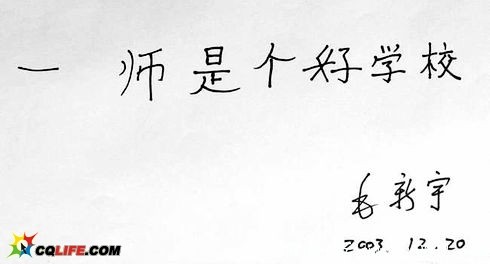 一师是个好学校
毛新宇
2003.12.20
CQLIFE.COM